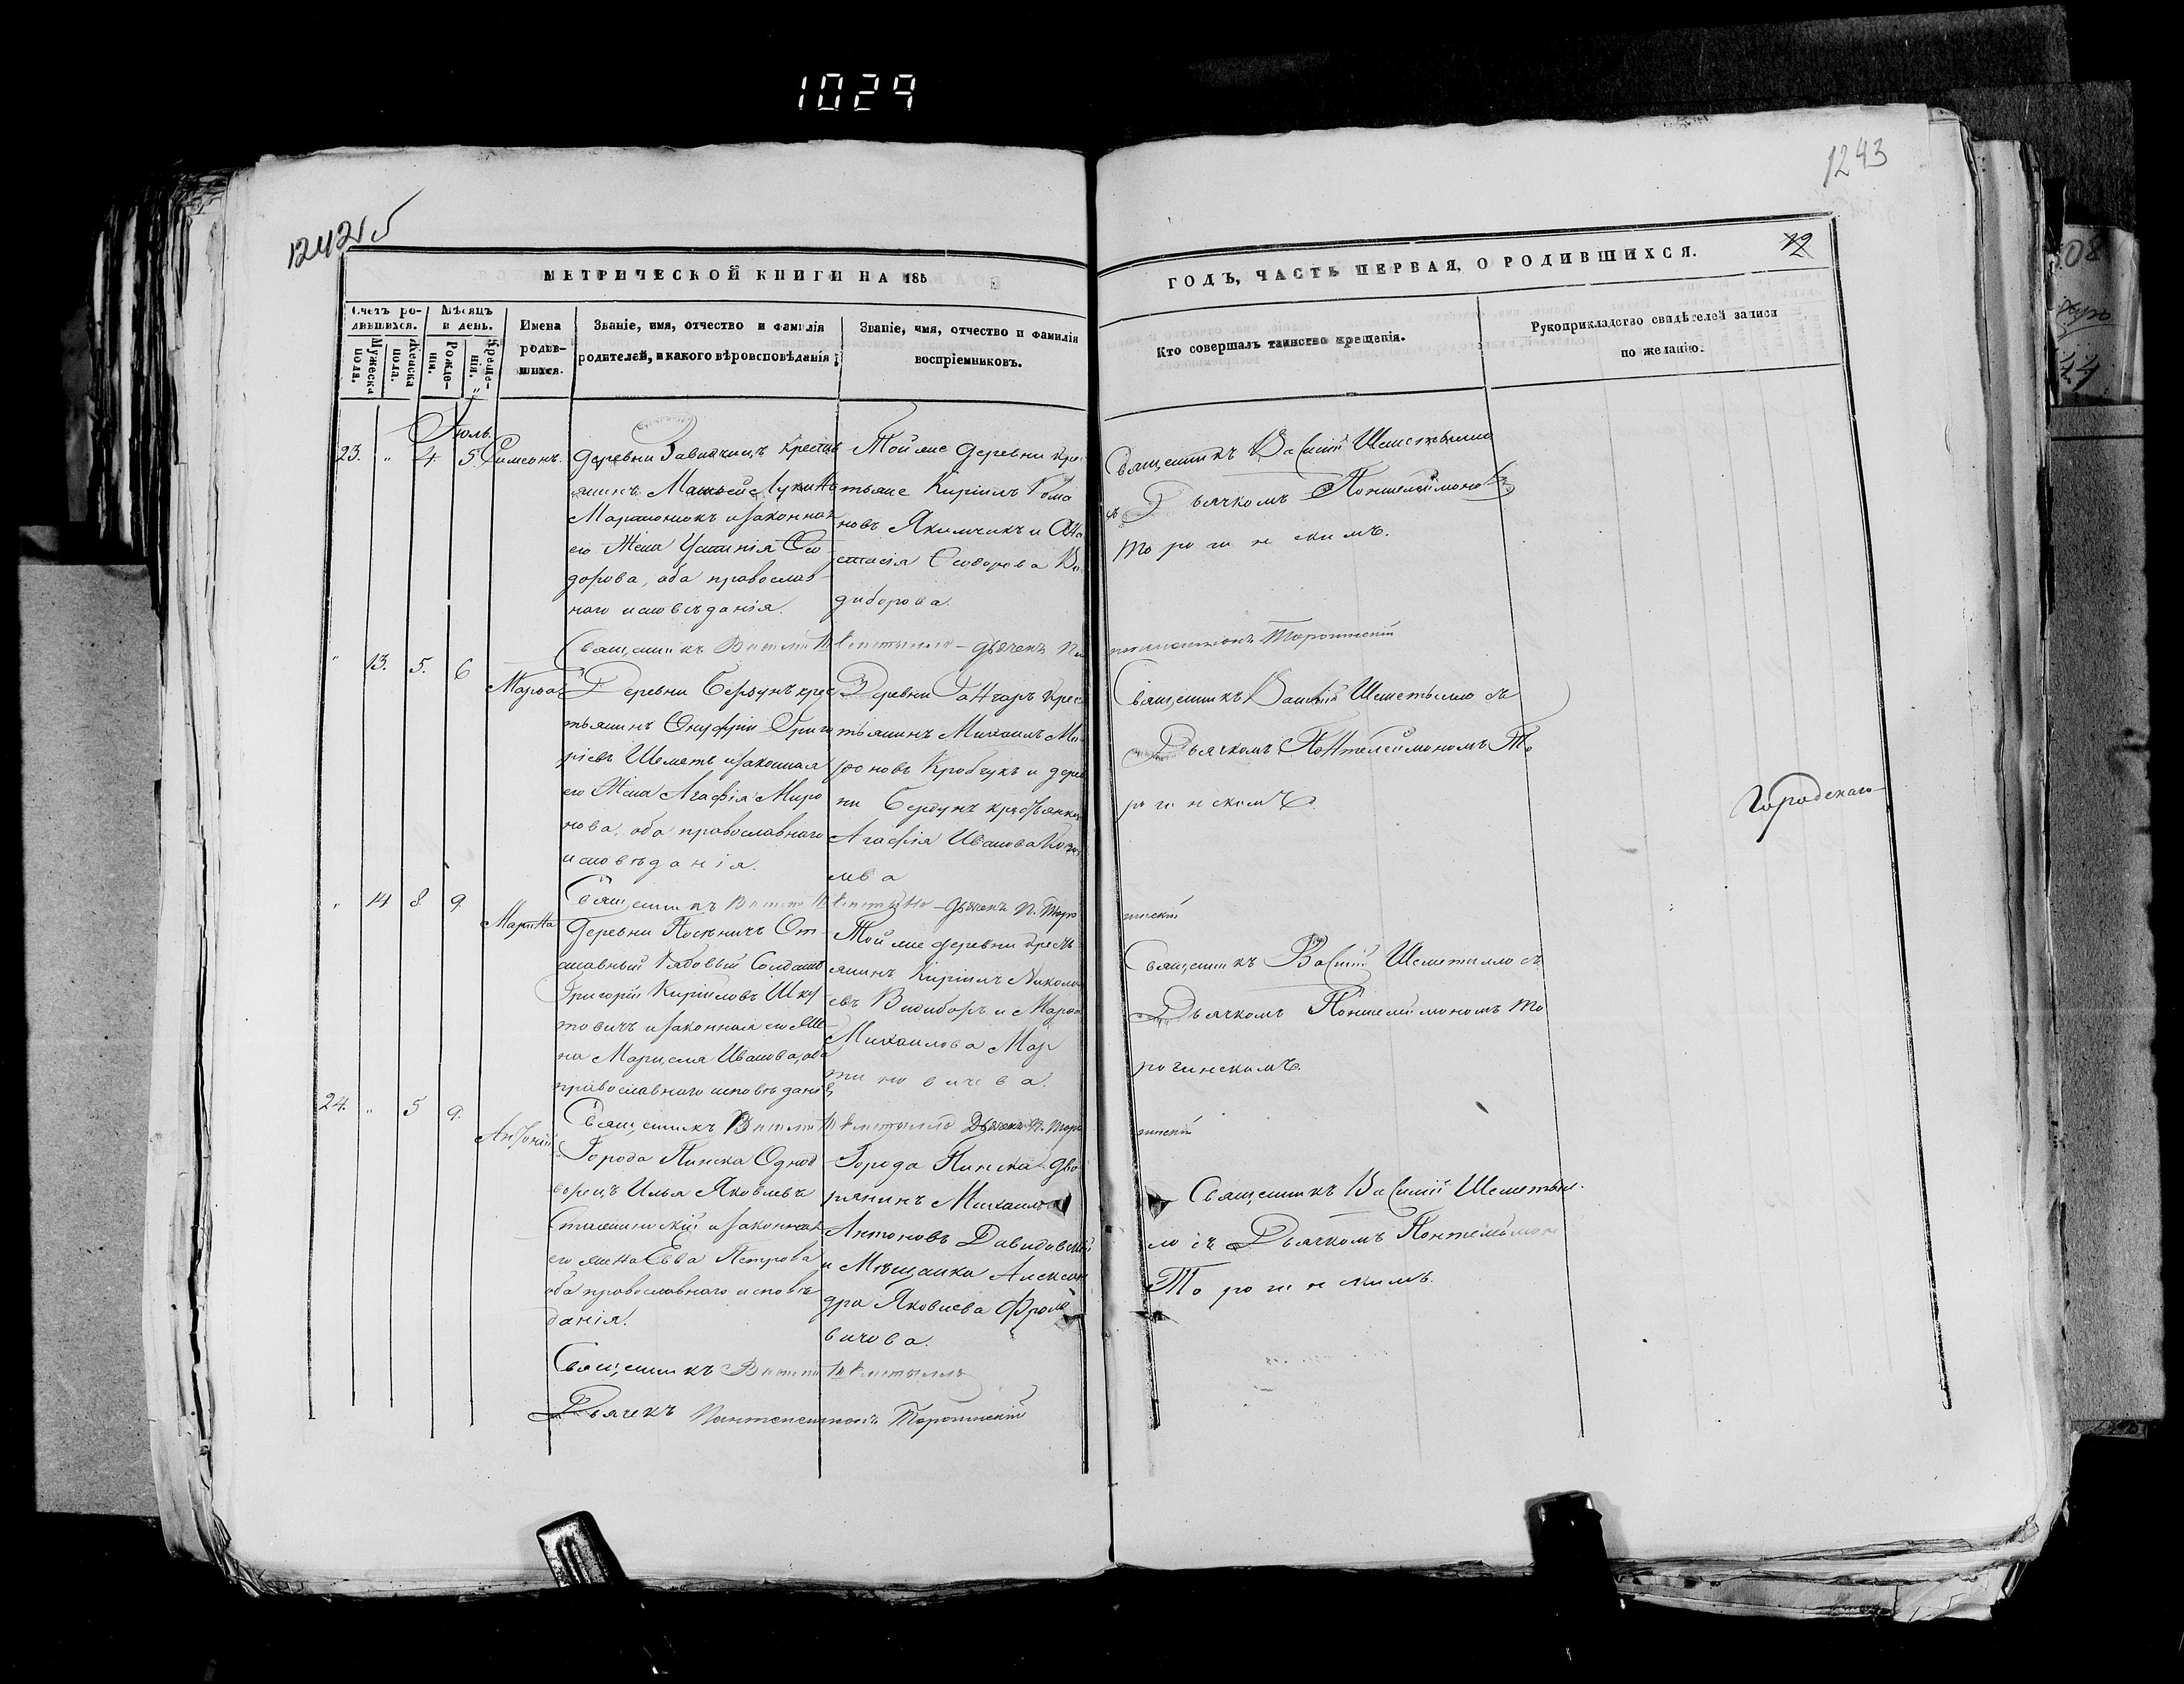 1029
1243
12421 5
МЕТРИЧЕСКОЙ КНИГИ НА 185
ГОДЪ, ЧАСТЬ ПЕРВАЯ, О РОДИВШИХСЯ.
12
Счетъ ро-
дившихся.
Мужеска
пола.
Женска
пола.
Мѣсяцъ
и день.
Рожде-
нія.
Креще-
нія.
Имена
родив-
шихся.
Званіе, имя, отчество и фамилія
родителей, и какого вѣроисповѣданія
Званіе, имя, отчество и фамилія
воспріемниковъ.
Кто совершалъ таинство крещенія.
Рукоприкладство свидѣтелей записи
по желанію.
Іюль.
23. " 4. 5. Симеонъ.
деревни крестья
янинъ Матвей Лукинъ
Мартонюкъ и законная
его жена Устинія Ѳео
дорова, оба православ-
наго исповѣданія.
Той же деревни крес
тьяне Киріилъ Рома
новъ Якимчикъ и Ана
стасія Ѳеодорова Ви
диборова.
Священникъ Василій Шеметилло
съ Дьячкомъ Пантелеймоно
Торогинскимъ.
Священникъ Василій Шеметилло - дьячекъ Пантелеимонъ Торогинскій
" 13. 5. 6 Марѳа
Деревни крес
тьянинъ Онуфрій Григо
ріевъ Шеметъ и законная
его жена Агафія Миро
нова, оба православнаго
исповѣданія.
Деревни крес
тьянинъ Михаилъ Ми
роновъ Кробчукъ и дерев
ни крестьянка
Агафія Иванова
ова
Священникъ Василій Шеметилло съ
Дьячкомъ Пантелеймономъ То
рогинскимъ.
Городскаго
Священникъ Василій Шеметилло - дьячекъ П. Торогинскій
" 14 8 9. Марина
деревни Посѣничъ От-
ставный Рядовый Солдатъ
Григорій Киріиловъ Шку
товичъ и законная его же-
на Марцеля Иванова, оба
православнаго исповѣданія
Той же деревни кресть
янинъ Киріилъ Никола
евъ Видиборъ и Марѳа
Михаилова Мар
тиновичева.
Священникъ Василій Шеметилло съ
Дьячкомъ Пантелеймономъ То
рогинскимъ.
Священникъ Василій Шеметилло Дьячекъ П. Торогинскій
24. " 5 9. Антоній
Города Пинска Однод
ворецъ Илья Яковлевъ
и законная
его жена Евва Петрова
оба православнаго исповѣ
данія.
Города Пинска дво
рянинъ Михаилъ
Антоновъ Давидовскій
и Мѣщанка Алексан
дра Яковлева Фроло
вичова.
Священникъ Василій Шеметил-
ло съ Дьячкомъ Пантелеймоно
Торогинскимъ.
Священникъ Василій Шеметилло
Дьячекъ Пантелеимонъ Торогинскій